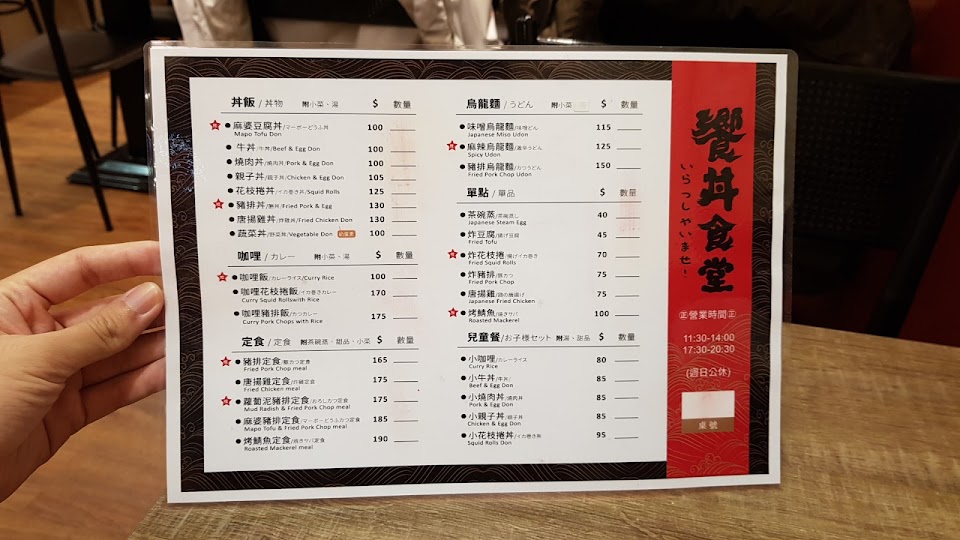 丼飯 / 丼物 附小菜、湯 $ 數量
麻婆豆腐丼/マーボーどうふ丼 100
Mapo Tofu Don
牛丼/牛丼/Beef & Egg Don 100
燒肉丼/焼肉丼/Pork & Egg Don 100
親子丼/親子丼/Chicken & Egg Don 105
花枝捲丼/イカ巻き丼/Squid Rolls 125
豬排丼/勝丼/Fried Pork & Egg 130
唐揚雞丼/炸雞丼/Fried Chicken Don 130
蔬菜丼/野菜丼/Vegetable Don 100
咖哩 / カレー 附小菜、湯 $ 數量
咖哩飯/カレーライス/Curry Rice 100
咖哩花枝捲飯/イカ巻きカレー 170
Curry Squid Rollswith Rice
咖哩豬排飯/カツカレー 175
Curry Pork Chops with Rice
定食 / 定食 附茶碗蒸、甜品、小菜 $ 數量
豬排定食/豚カツ定食 165
Fried Pork Chop meal
唐揚雞定食/炸雞定食 175
Fried Chicken meal
蘿蔔泥豬排定食/おろしカツ定食 175
Mud Radish & Fried Pork Chop meal
麻婆豬排定食/マーボーどうふカツ定食 185
Mapo Tofu & Fried Pork Chop meal
烤鯖魚定食/焼きサバ定食 190
Roasted Mackerel meal
烏龍麵 / うどん 附小菜 $ 數量
味噌烏龍麵/味噌どん 115
Japanese Miso Udon
麻辣烏龍麵/激辛うどん 125
Spicy Udon
豬排烏龍麵/カツうどん 150
Fried Pork Chop Udon
單點 / 單品 $ 數量
茶碗蒸/茶碗蒸し 40
Japanese Steam Egg
炸豆腐/揚げ豆腐 45
Fried Tofu
炸花枝捲/揚げイカ巻き 70
Fried Squid Rolls
炸豬排/豚カツ 75
Fried Pork Chop
唐揚雞/鶏の唐揚げ 75
Japanese Fried Chicken
烤鯖魚/焼きサバ 100
Roasted Mackerel
兒童餐/お子様セット 附湯、甜品 $ 數量
小咖哩/カレーライス 80
Curry Rice
小牛丼/牛丼/ 85
Beef & Egg Don
小燒肉丼/焼肉丼 85
Pork & Egg Don
小親子丼/親子丼 85
Chicken & Egg Don
小花枝捲丼/イカ巻き丼 95
Squid Rolls Don
饗丼食堂
いらっしゃいませ!
㊣營業時間㊣
11:30-14:00
17:30-20:30
(週日公休)
桌號